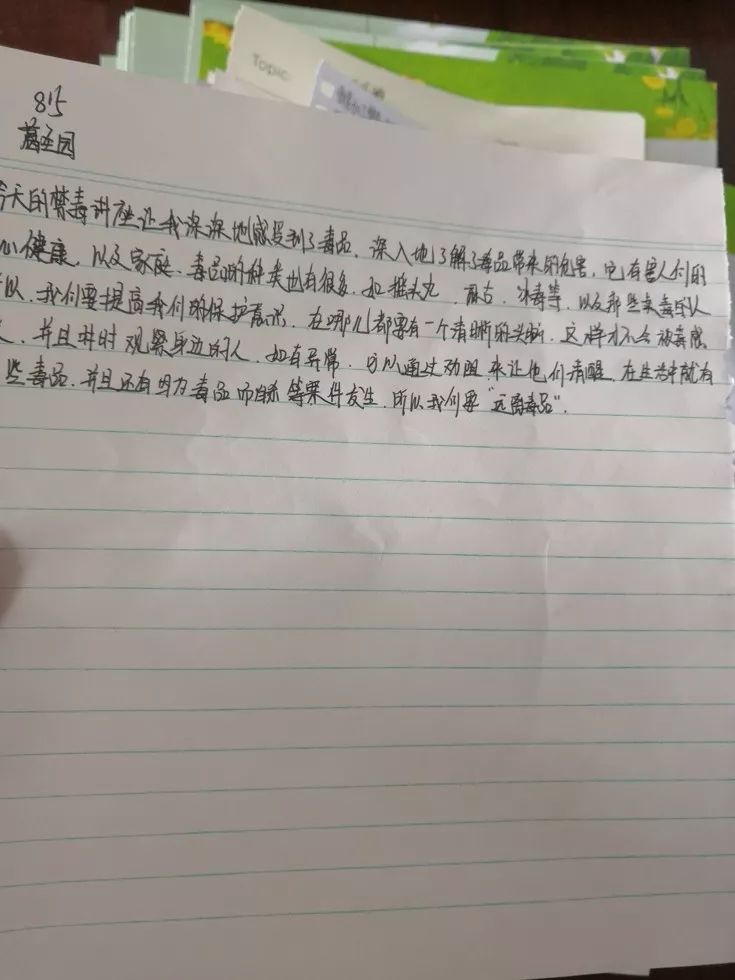 Topic:
815
葛圣园
今天的禁毒讲座让我深深地感受到了毒品，深入地了解了毒品带来的危害，它有害人们的
心健康，以及家庭，毒品的种类也有很多，如摇头丸，麻古，冰毒等，以及那些
以，我们要提高我们的保护意识，在哪儿都要有一个清晰的头脑，这样才不会被毒
，并且井时观察身边的人，如有异常，可以通过劝阻来让他们清醒，在生活中就有
些毒品，并且还有因为毒品而 等案件发生，所以我们要“远离毒品”.